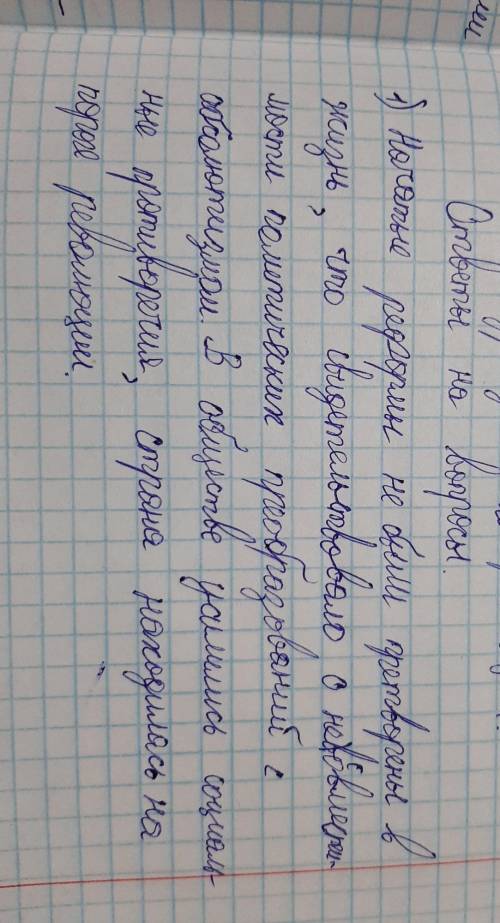 Ответы на вопросы.
1) Начатые реформы не были претворены в
жизнь, что свидетельствовало о несовмести-
мости политических преобразований с
абсолютизмом. В обществе усилились социаль-
ные противоречия, страна находилась на
пороге революции.